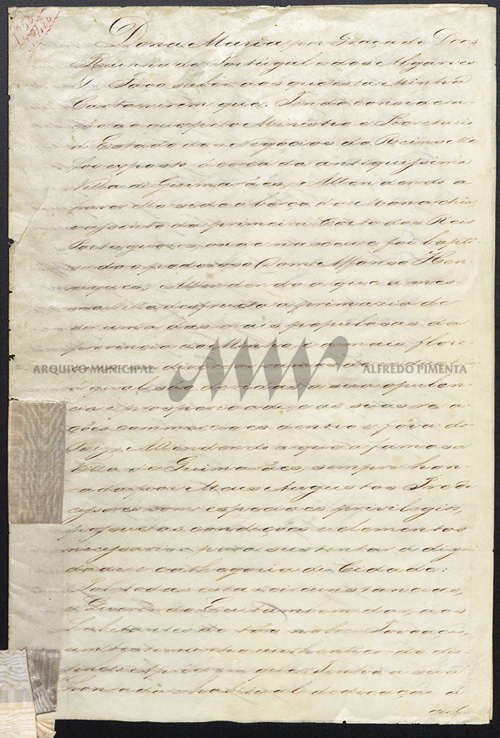 Dona Maria por Graça de Deos
Rainha de Portugal e dos Algarves
&. Faço saber aos que esta Minha
Carta virem que: Tendo considera
ção ao que pelo Ministro e Secretario
d'Estado dos Negocios do Reino Me
foi exposto á cerca da antiquissima
Villa de Guimarães; Attendendo a
haver ella sido o berço da Monarchia
e assento da primeira Corte dos Reis
Portuguezes, onde nasceu e foi bapti
sado o poderoso Dom Affonso Hen
riques; Attendendo a que a mes
ma Villa desfructa a primazia de
ser uma das mais populosas da
provincia do Minho e a mais flore
ARQUIVO MUNICIPAL ALFREDO PIMENTA
á qual são devidas a sua opulen
cia e prosperidade, e as suas rela
ções commerciaes dentro e fóra do
Paiz; Attendendo a que a famosa
Villa de Guimarães, sempre hon
rada por Meus Augustos Prede
cessores com especiaes privilegios,
possue as condições e elementos
necessarios para sustentar a digni
dade e cathegoria de Cidade:
Por todas estas circunstancias,
e Querendo Eu tambem dar aos
habitantes de tão nobre Povoação,
um testemunho authentico do
apreço em que Tenho a sua
honrada e habitual dedicação á